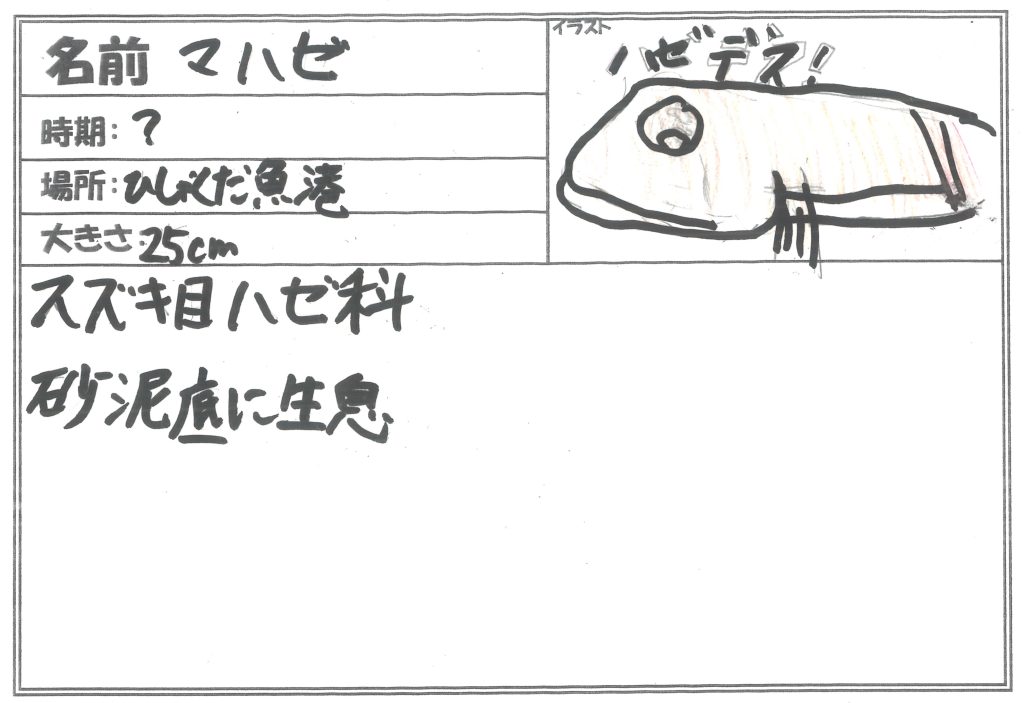 名前 マハゼ
イラスト
ハゼデス!
時期:?
場所:ひしゃくだ魚港
大きさ:25cm
スズキ目ハゼ科
砂泥底に生息